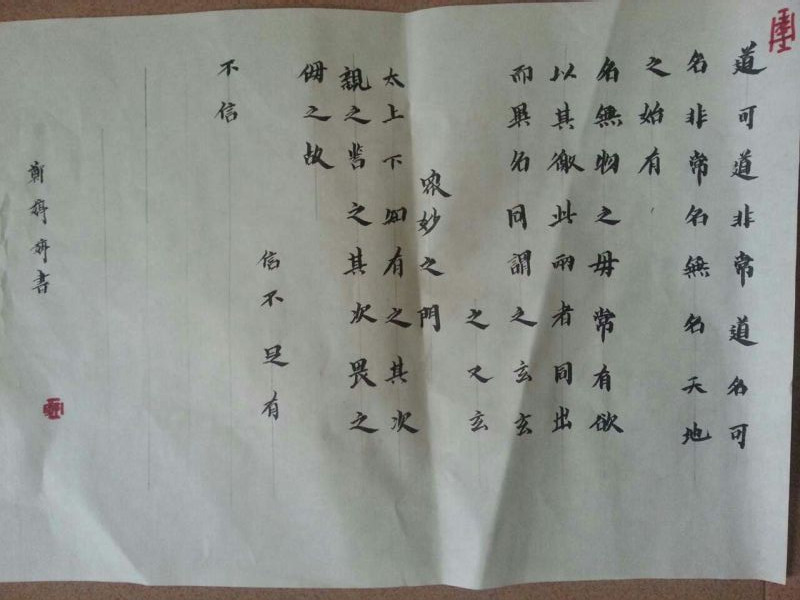 道可道非常道名可
名非常名無名天地
之始有
名無物之母常有欲
以其徼此兩者同出
而異名同謂之玄玄
之又玄
眾妙之門
太上下知有之其次
親之譽之其次畏之
侮之故
信不足有
不信
鄭婷婷書